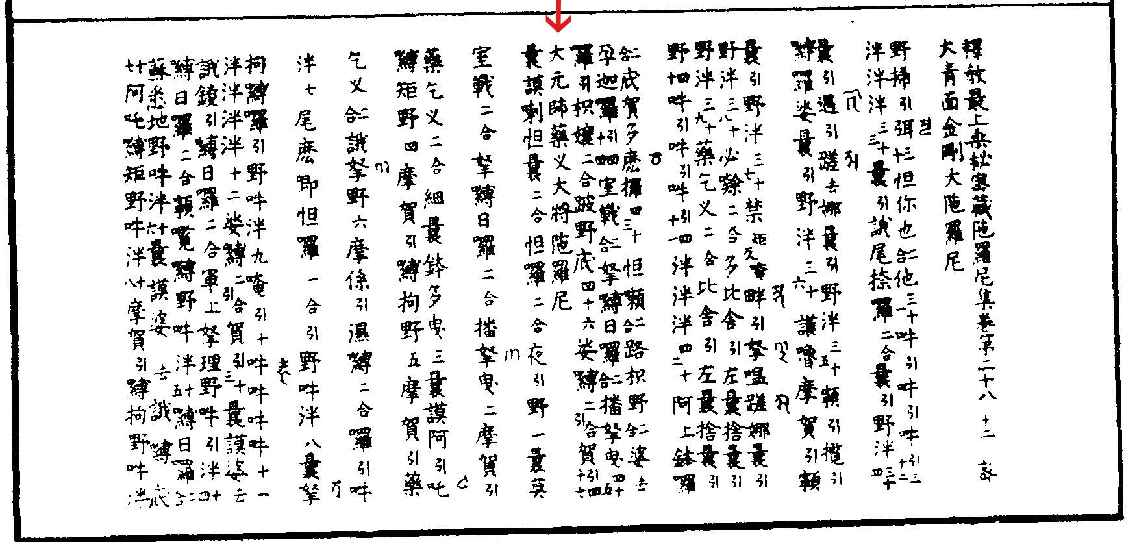 釋教最上乘秘密藏陁羅尼集卷第二十八 十三
大青面金剛大陁羅尼
野捺引弭十三怛你也合二他三十吽引吽引吽引三十二
泮泮泮三十三曩引誐尾捺羅二合曩引野泮三十四
曩引遏引蹉去娜曩引野泮三十五頼引攬引
嚩羅娑曩引野泮三十六護嚕摩賀引頼
曩引野泮三十七禁畔引拏嗢蹉娜曩引
野泮三十八必隸二合多比舍引左曩捨曩引
野泮三十九藥乞义二合比舍引左曩捨曩引
野四十吽引吽引吽引四十一泮泮泮四十二阿上鉢羅
合二底賀多麽攞四十三怛頼合二路枳野合二婆去
孕迦羅引四十四室戰合二拏嚩日羅合二播拏曳四十五
羅引枳孃二合跛野底四十六娑嚩二合引賀引四十七
大元帥藥义大將陁羅尼
曩謨喇怛曩二合怛羅二合夜引野一曩莫
室戰二合拏嚩日羅二合播拏曳二摩賀引
藥乞义二合細曩鉢多曳三曩謨阿引吒
嚩矩野四摩賀引嚩拘野五摩賀引藥
乞义合二誐拏野六摩係引濕嚩二合羅引吽
泮七尾麽即怛羅一合引野吽泮八曩拏
拘嚩羅引野吽泮九唵引十吽吽吽吽十一
泮泮泮泮十二娑嚩二合引賀引十三曩謨婆去
誐鏡引嚩日羅二合軍上拏理野吽引泮十四
嚩日羅二合頼寬嚩野吽泮十五嚩日羅合二
蘇悉地野吽泮十六曩謨婆去誐嚩底
廿阿吒嚩矩野吽泮十八摩賀引嚩拘野吽泮